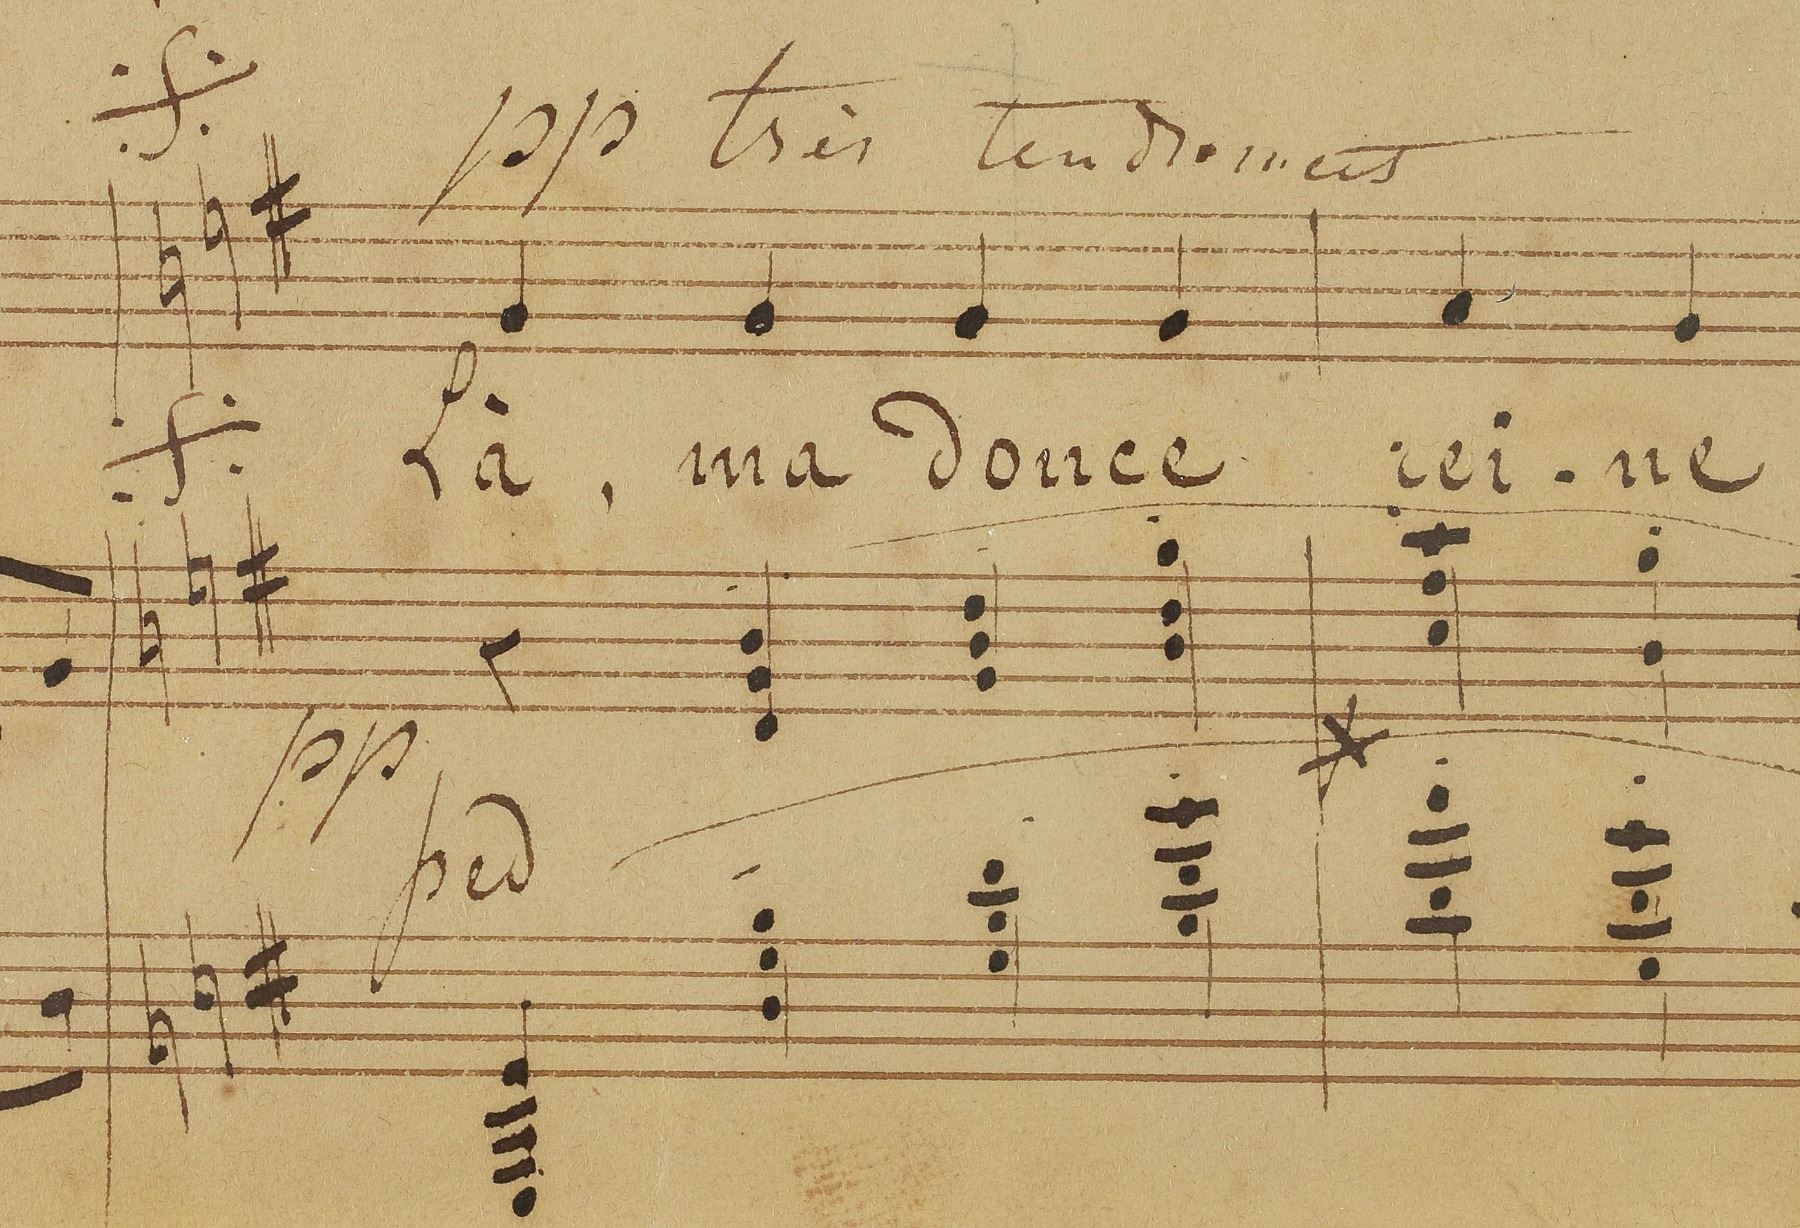 pp très tendrement
Là, ma douce rei-ne
pp
ped